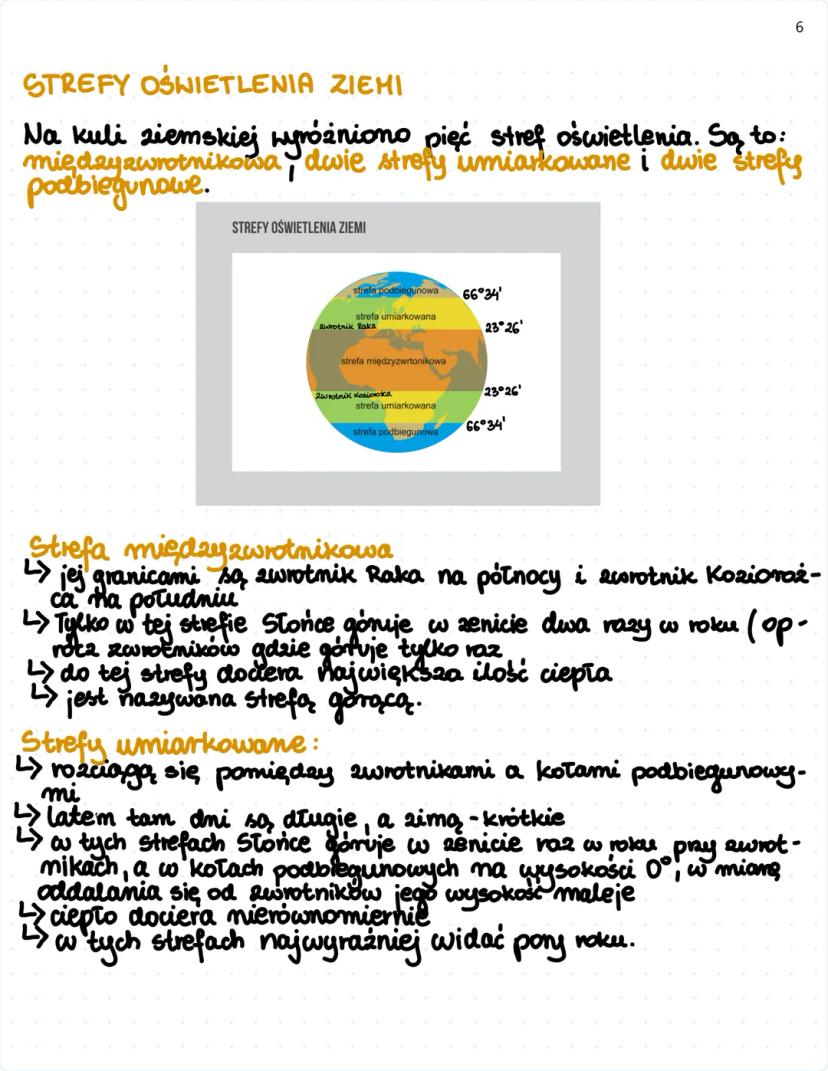 6
STREFY OŚWIETLENIA ZIEMI
Na kuli ziemskiej wyróżniono pięć stref oświetlenia. Są to:
międzyzwrotnikowa, dwie strefy umiarkowane i dwie strefy
podbiegunowe.
STREFY OŚWIETLENIA ZIEMI
strefa podbiegunowa
66°34'
strefa umiarkowana
zwrotnik Raka
23°26'
strefa międzyzwrtonikowa
zwrotnik Koziorożca
23°26'
strefa umiarkowana
66°34'
strefa podbiegunowa
Strefa międzyzwrotnikowa
↳ jej granicami są zwrotnik Raka na północy i zwrotnik Kozioroż-
ca na południu
↳ Tylko w tej strefie Słońce góruje w zenicie dwa razy w roku (op-
rócz zwrotników gdzie góruje tylko raz
↳ do tej strefy dociera największa ilość ciepła
↳ jest nazywana strefą gorącą.
Strefy umiarkowane:
↳ rozciągą się pomiędzy zwrotnikami a kołami podbiegunowy-
mi
↳ latem tam dni są długie, a zimą - krótkie
↳ w tych strefach Słońce góruje w zenicie raz w roku przy zwrot-
nikach, a w kołach podbiegunowych na wysokości 0°, w miarę
oddalania się od zwrotników jego wysokość maleje
↳ ciepło dociera nierównomiernie
↳ w tych strefach najwyraźniej widać pory roku.